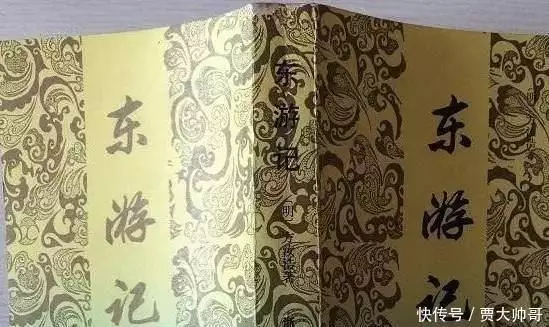 东游记
东游记
明
东游记
快传号/贾大帅哥